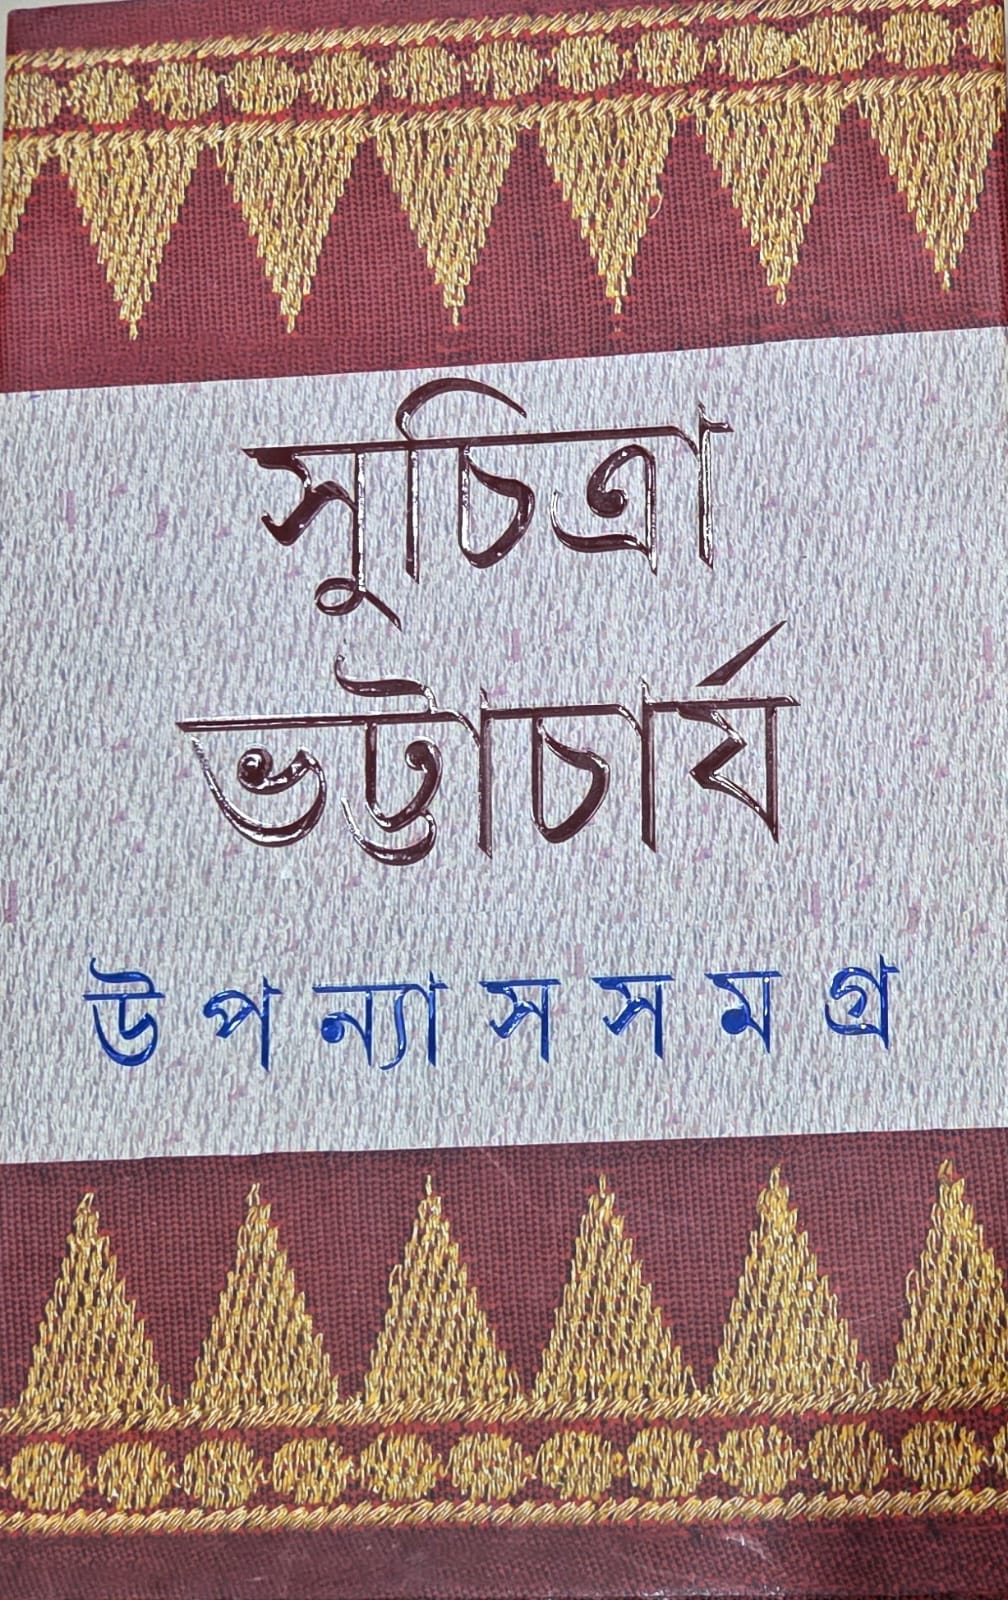 সুচিত্রা
ভট্টাচার্য
উপন্যাসসমগ্র